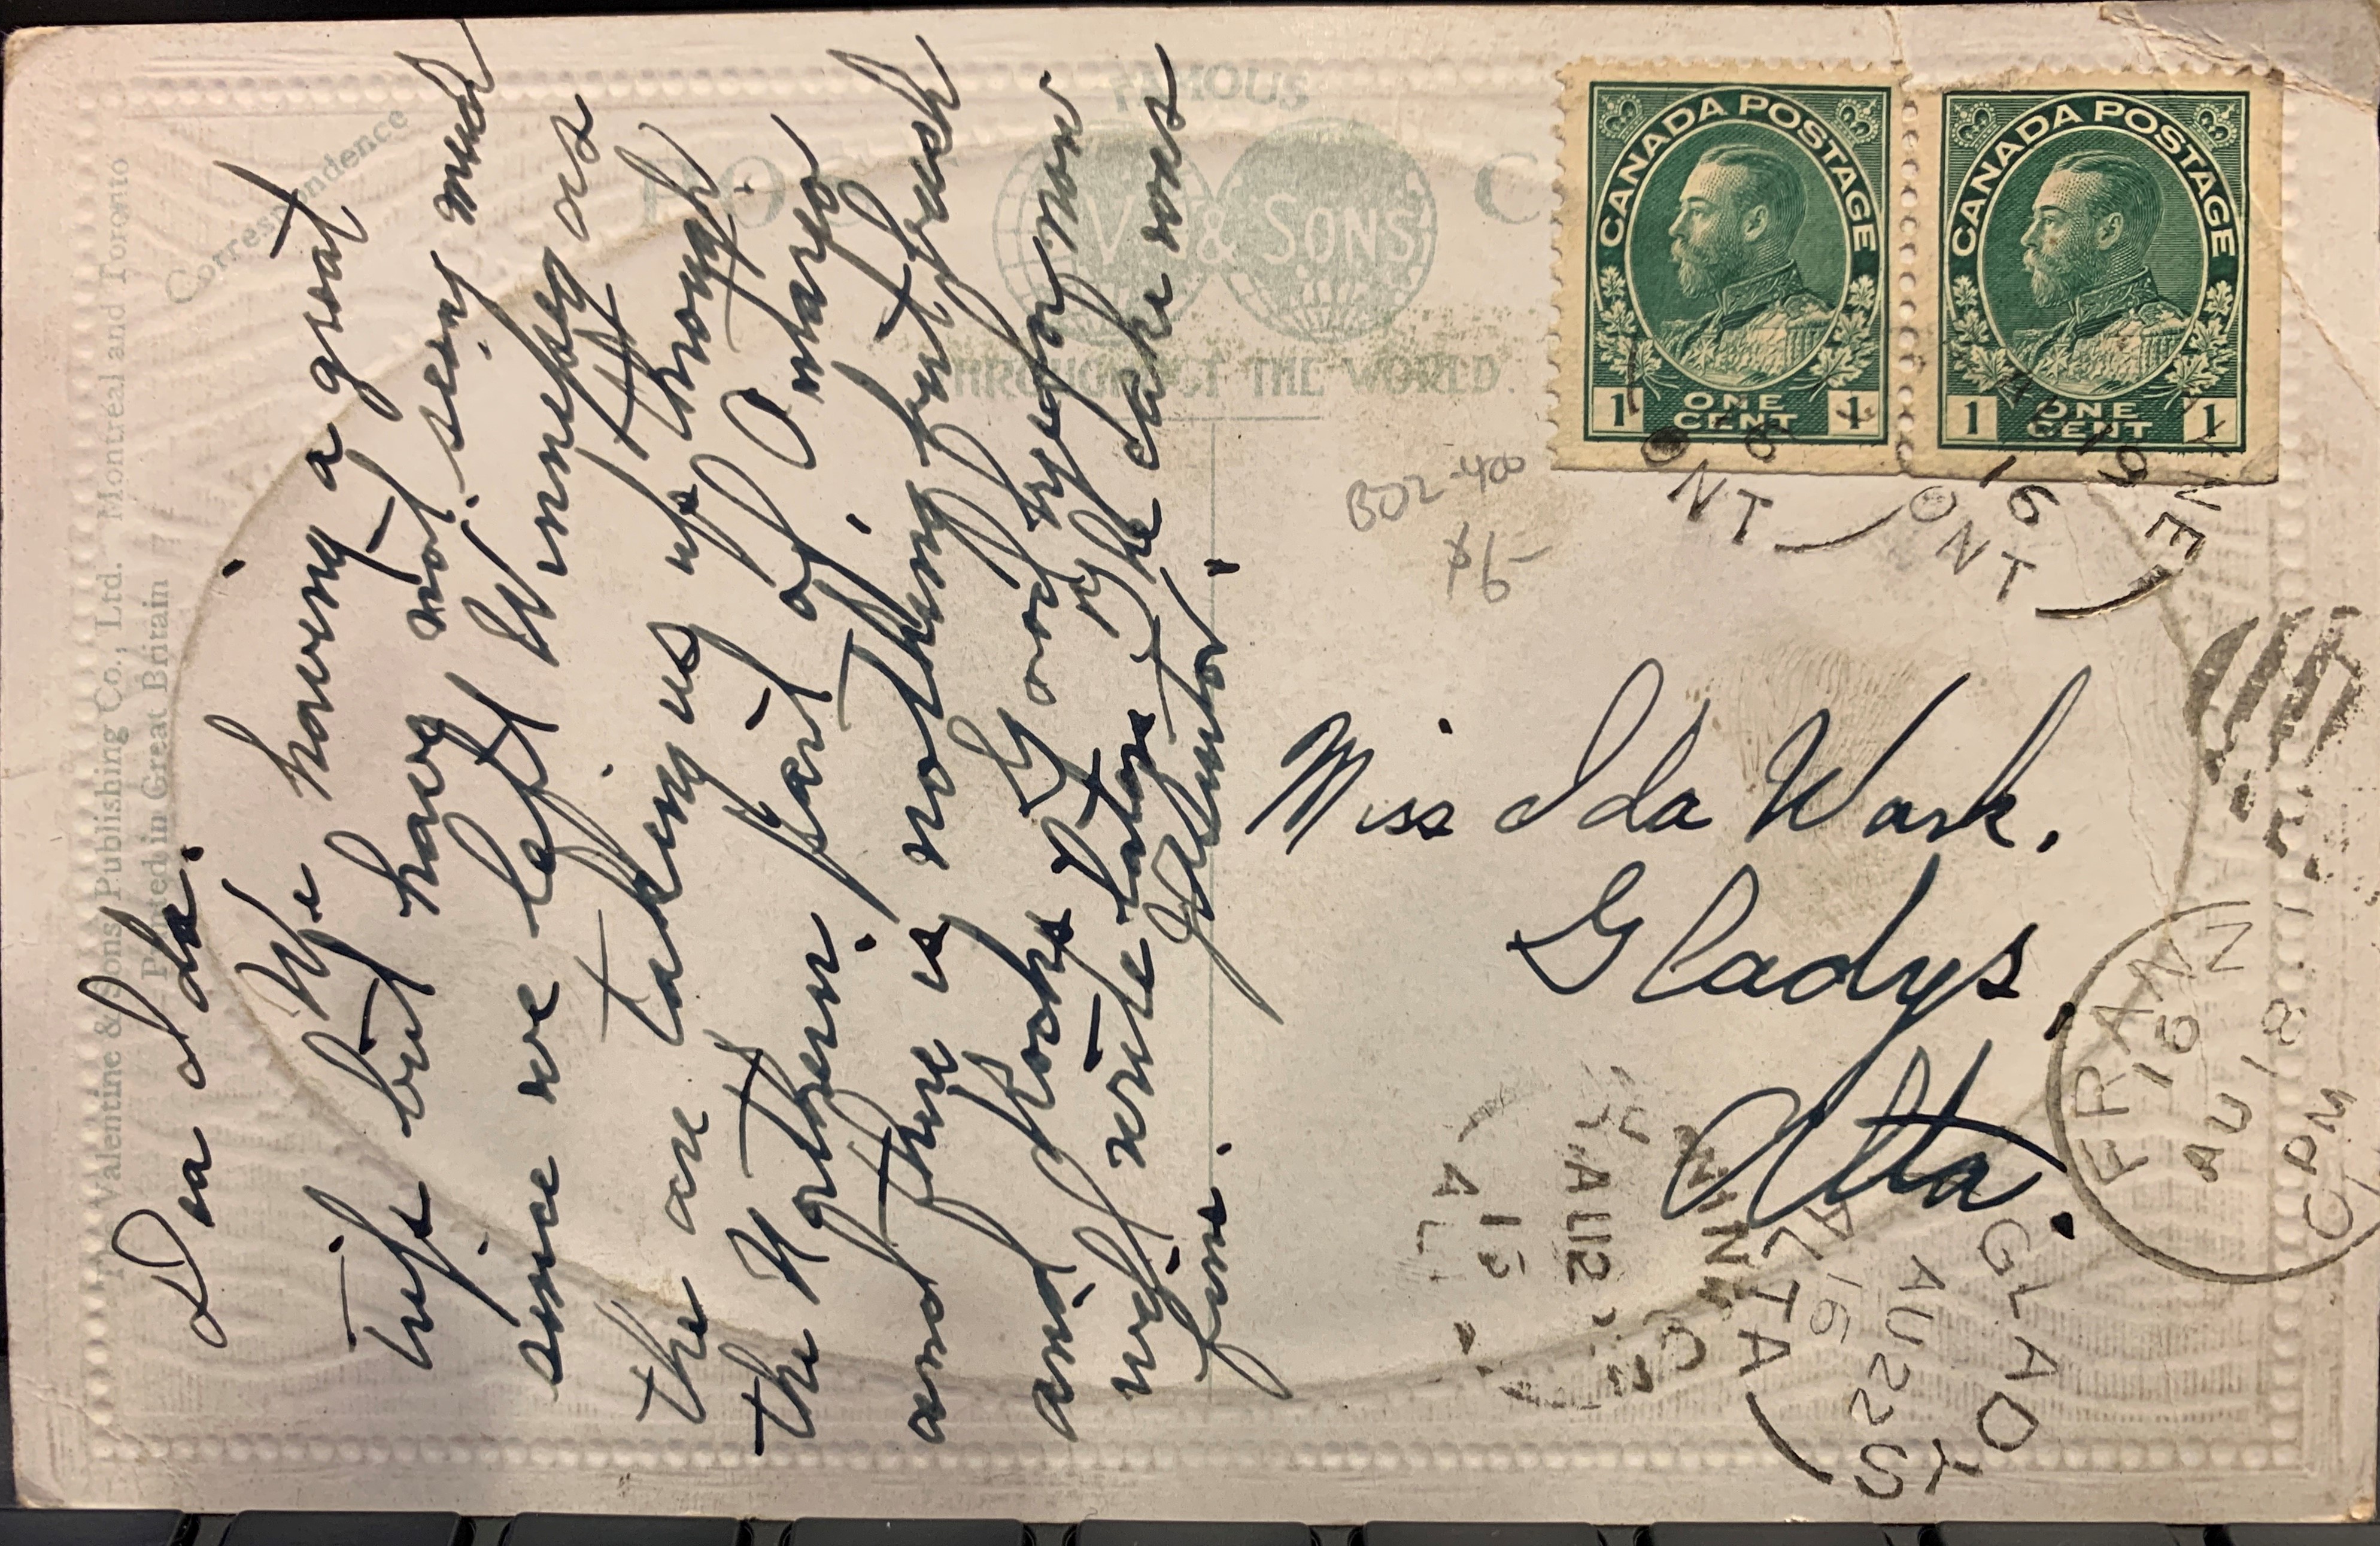 The Valentine & Sons Publishing Co., Ltd. Montreal and Toronto
Printed in Great Britain
Correspondence
FAMOUS
V. & SONS
THROUGHOUT THE WORLD
Dear Ida.
We having a great
trip but have not seeing much
since we left Winnepeg as
the are taking us up through
the Northern part of Ontario
and there is nothing but bush
and rocks Ly and myself now
will write later The cake was
fine.
CANADA POSTAGE
1 ONE CENT 1
CANADA POSTAGE
1 ONE CENT 1
ONT
16
ONT
BO2-400
Miss Ida Wark.
Gladys.
Alta.
FRAN
16
AU 18
PM
ALTA
GLAD YS
AU 22
16
ALTA